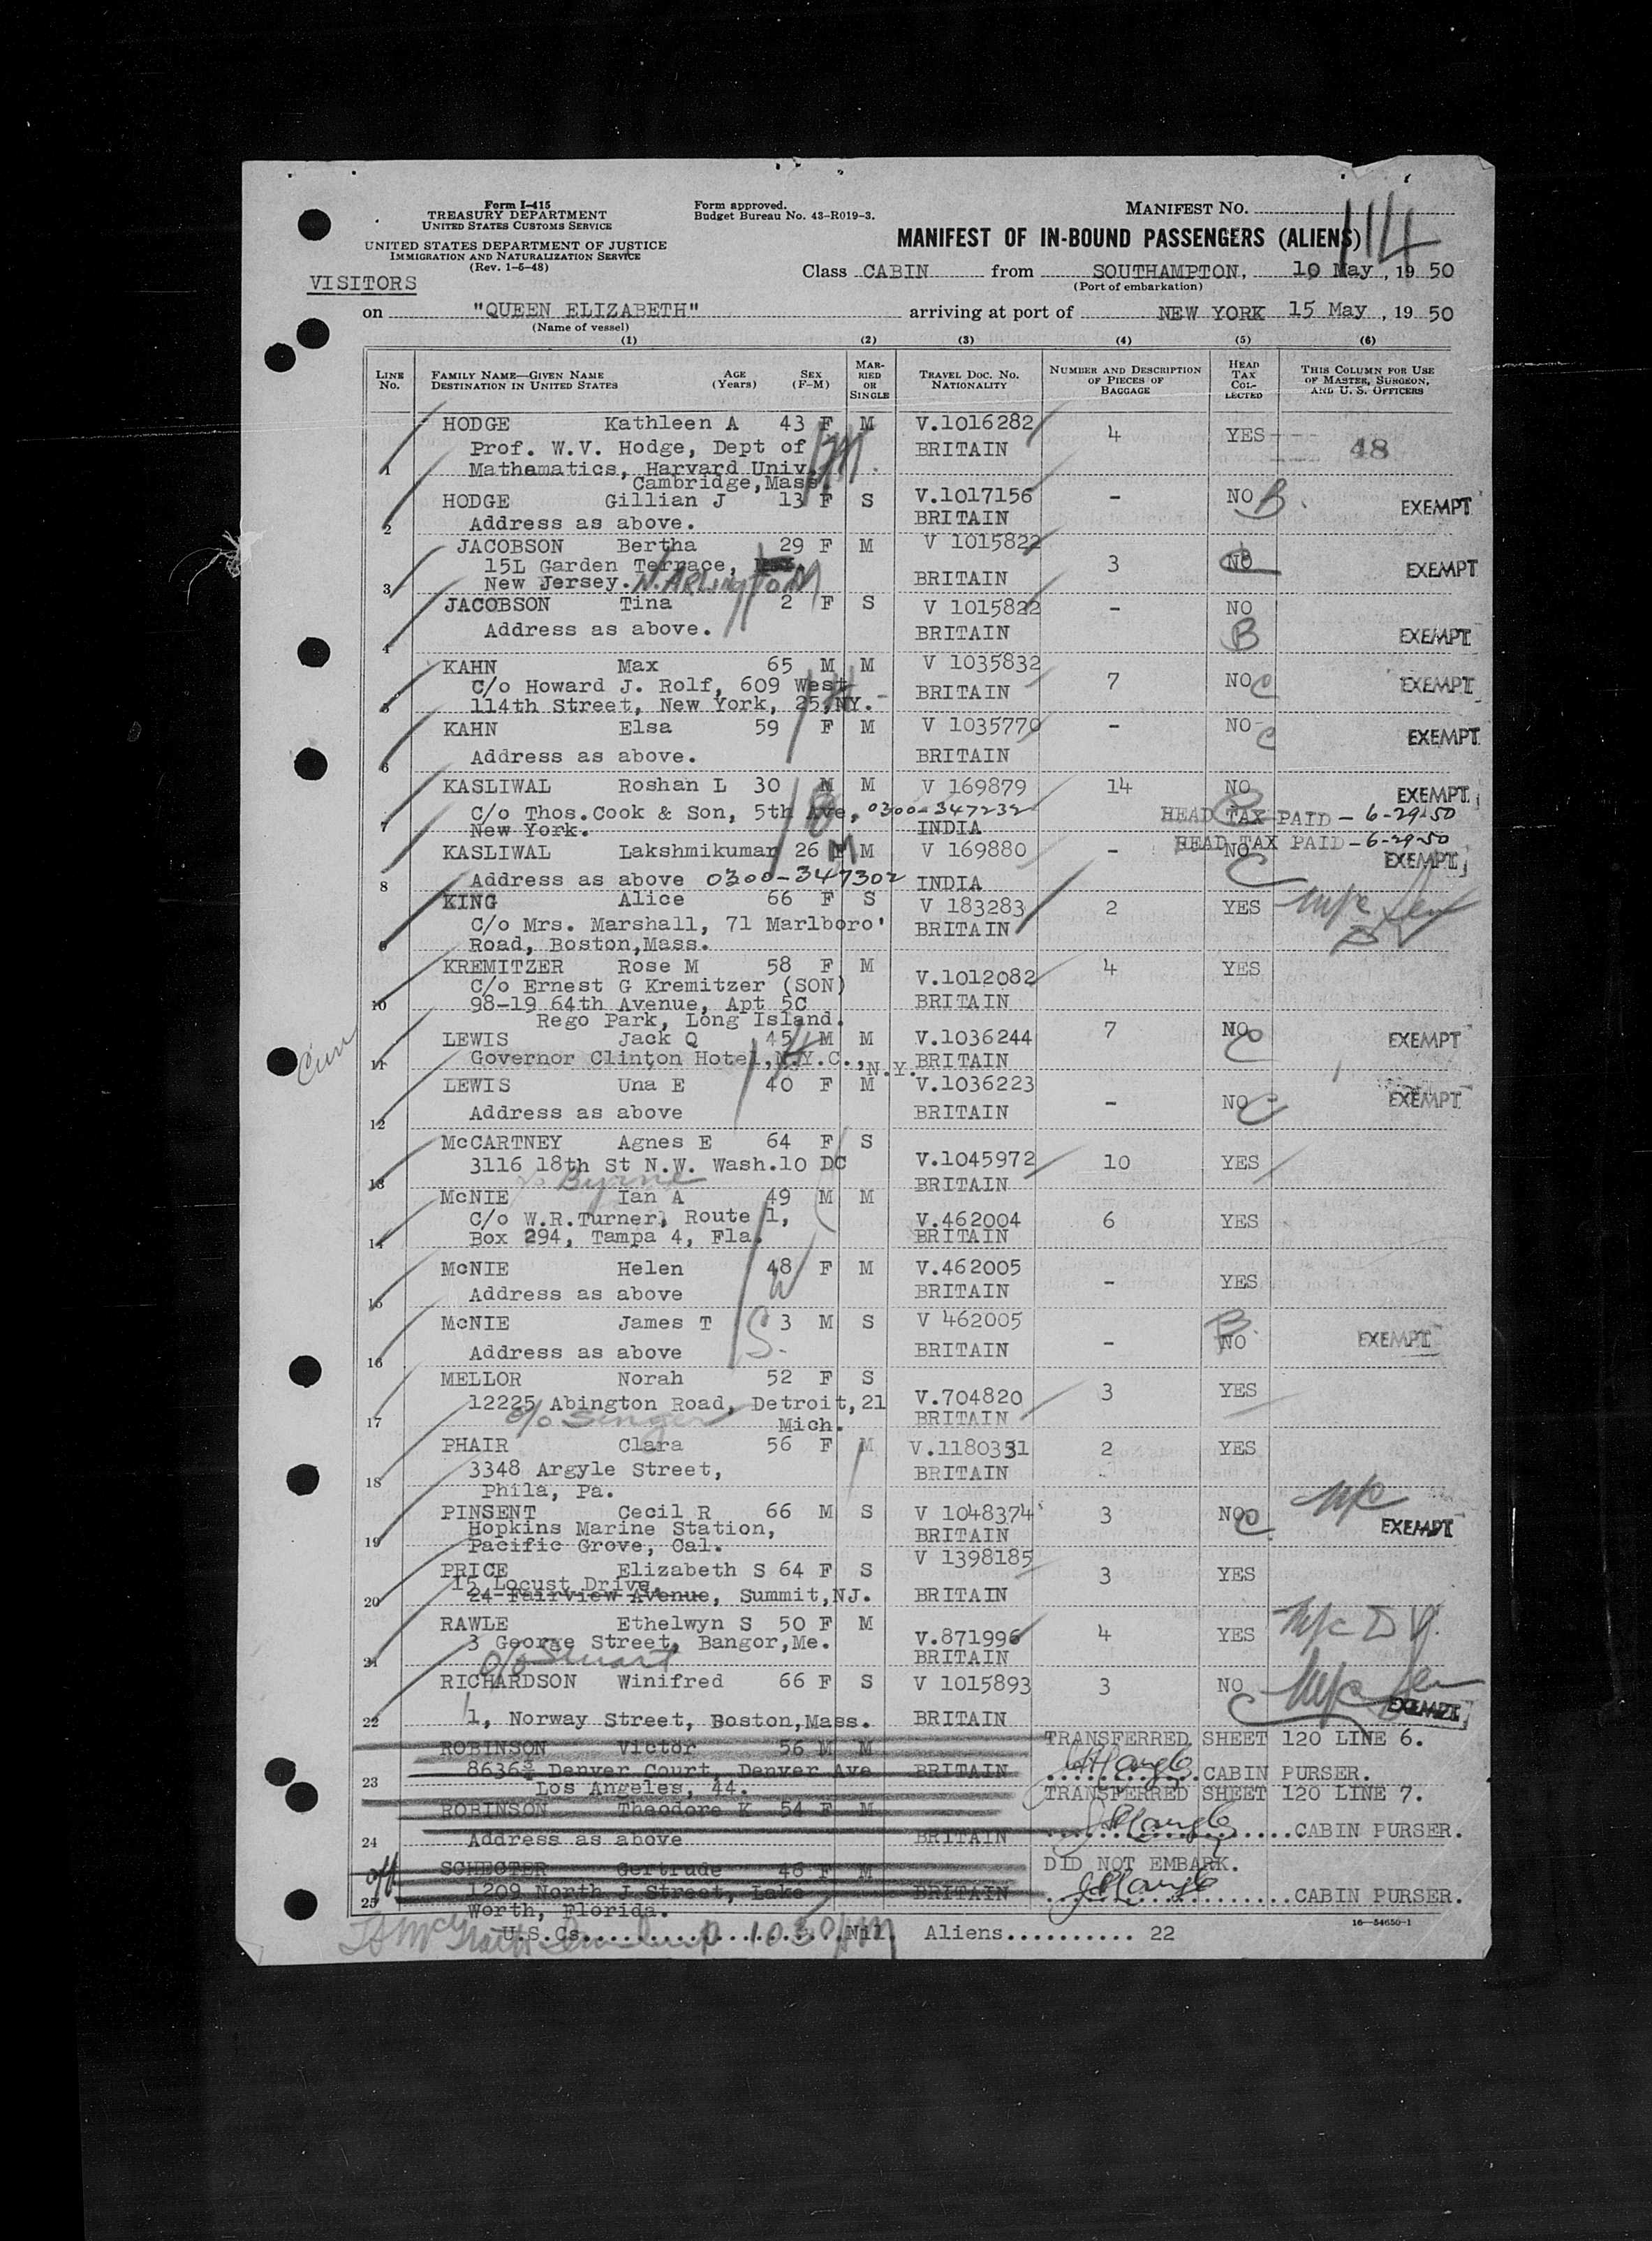 Form I-415
TREASURY DEPARTMENT
UNITED STATES CUSTOMS SERVICE
UNITED STATES DEPARTMENT OF JUSTICE
IMMIGRATION AND NATURALIZATION SERVICE
(Rev. 1-5-48)
Form approved.
Budget Bureau No. 43-R019-3.
MANIFEST No. 114
MANIFEST OF IN-BOUND PASSENGERS (ALIENS)
VISITORS
Class CABIN from SOUTHAMPTON, 10 May, 1950
(Port of embarkation)
on "QUEEN ELIZABETH" arriving at port of NEW YORK 15 May, 1950
(Name of vessel)
(1) (2) (3) (4) (5) (6)
LINE No. FAMILY NAME—GIVEN NAME DESTINATION IN UNITED STATES AGE (Years) SEX (F-M) MARRIED OR SINGLE TRAVEL DOC. NO. NATIONALITY NUMBER AND DESCRIPTION OF PIECES OF BAGGAGE HEAD TAX COLLECTED THIS COLUMN FOR USE OF MASTER, SURGEON, AND U. S. OFFICERS
HODGE Kathleen A 43 F M V.1016282 4 YES 48
Prof. W.V. Hodge, Dept of BRITAIN
1 Mathematics, Harvard Univ.
Cambridge,Mass.
HODGE Gillian J 13 F S V.1017156 - NO B EXEMPT
2 Address as above. BRITAIN
JACOBSON Bertha 29 F M V 1015822 3 NO EXEMPT
15L Garden Terrace,
3 New Jersey. N. ARLINGTON BRITAIN
JACOBSON Tina 2 F S V 1015822 - NO
4 Address as above. BRITAIN B EXEMPT
KAHN Max 65 M M V 1035832 7 NO C EXEMPT
C/o Howard J. Rolf, 609 West BRITAIN
5 114th Street, New York, 25,NY.
KAHN Elsa 59 F M V 1035770 - NO C EXEMPT
6 Address as above. BRITAIN
KASLIWAL Roshan L 30 M M V 169879 14 NO EXEMPT
C/o Thos.Cook & Son, 5th Ave, 0300-347232 HEAD TAX PAID - 6-29-50
7 New York. INDIA
HEAD TAX PAID - 6-29-50
KASLIWAL Lakshmikumar 26 M M V 169880 - NO C EXEMPT
8 Address as above 0300-347302 INDIA
KING Alice 66 F S V 183283 2 YES
C/o Mrs. Marshall, 71 Marlboro' BRITAIN
9 Road, Boston,Mass.
KREMITZER Rose M 58 F M V.1012082 4 YES
C/o Ernest G Kremitzer (SON)
10 98-19 64th Avenue, Apt 5C BRITAIN
Rego Park, Long Island.
LEWIS Jack Q 45 M M V.1036244 7 NO C EXEMPT
11 Governor Clinton Hotel,N.Y.C.,N.Y. BRITAIN
LEWIS Una E 40 F M V.1036223 - NO C EXEMPT
12 Address as above BRITAIN
McCARTNEY Agnes E 64 F S V.1045972 10 YES
3116 18th St N.W. Wash.10 DC
13 Byrne BRITAIN
McNIE Ian A 49 M M V.462004 6 YES
C/o W.R.Turner, Route 1,
14 Box 294, Tampa 4, Fla. BRITAIN
McNIE Helen 48 F M V.462005 - YES
15 Address as above BRITAIN
McNIE James T 3 M S V 462005 - B NO EXEMPT
16 Address as above BRITAIN
MELLOR Norah 52 F S V.704820 3 YES
12225 Abington Road, Detroit,21
17 c/o Singer Mich. BRITAIN
PHAIR Clara 56 F M V.1180331 2 YES
3348 Argyle Street, BRITAIN
18 Phila, Pa.
PINSENT Cecil R 66 M S V 1048374 3 NO C EXEMPT
Hopkins Marine Station, BRITAIN
19 Pacific Grove, Cal.
PRICE Elizabeth S 64 F S V 1398185 3 YES
15 Locust Drive,
20 24 Fairview Avenue, Summit,NJ. BRITAIN
RAWLE Ethelwyn S 50 F M V.871996 4 YES
3 George Street, Bangor,Me.
21 c/o Stuart BRITAIN
RICHARDSON Winifred 66 F S V 1015893 3 NO C EXEMPT
22 1, Norway Street, Boston,Mass. BRITAIN
ROBINSON Victor 56 M M TRANSFERRED SHEET 120 LINE 6.
23 8636¾ Denver Court, Denver Ave BRITAIN CABIN PURSER.
Los Angeles, 44.
ROBINSON Theodore K 54 F M TRANSFERRED SHEET 120 LINE 7.
24 Address as above BRITAIN CABIN PURSER.
SCHECTER Gertrude 46 F M DID NOT EMBARK.
25 1209 North J Street, Lake BRITAIN CABIN PURSER.
Worth, Florida.
16—54650-1
U.S.Cs....................Nil. Aliens.......... 22